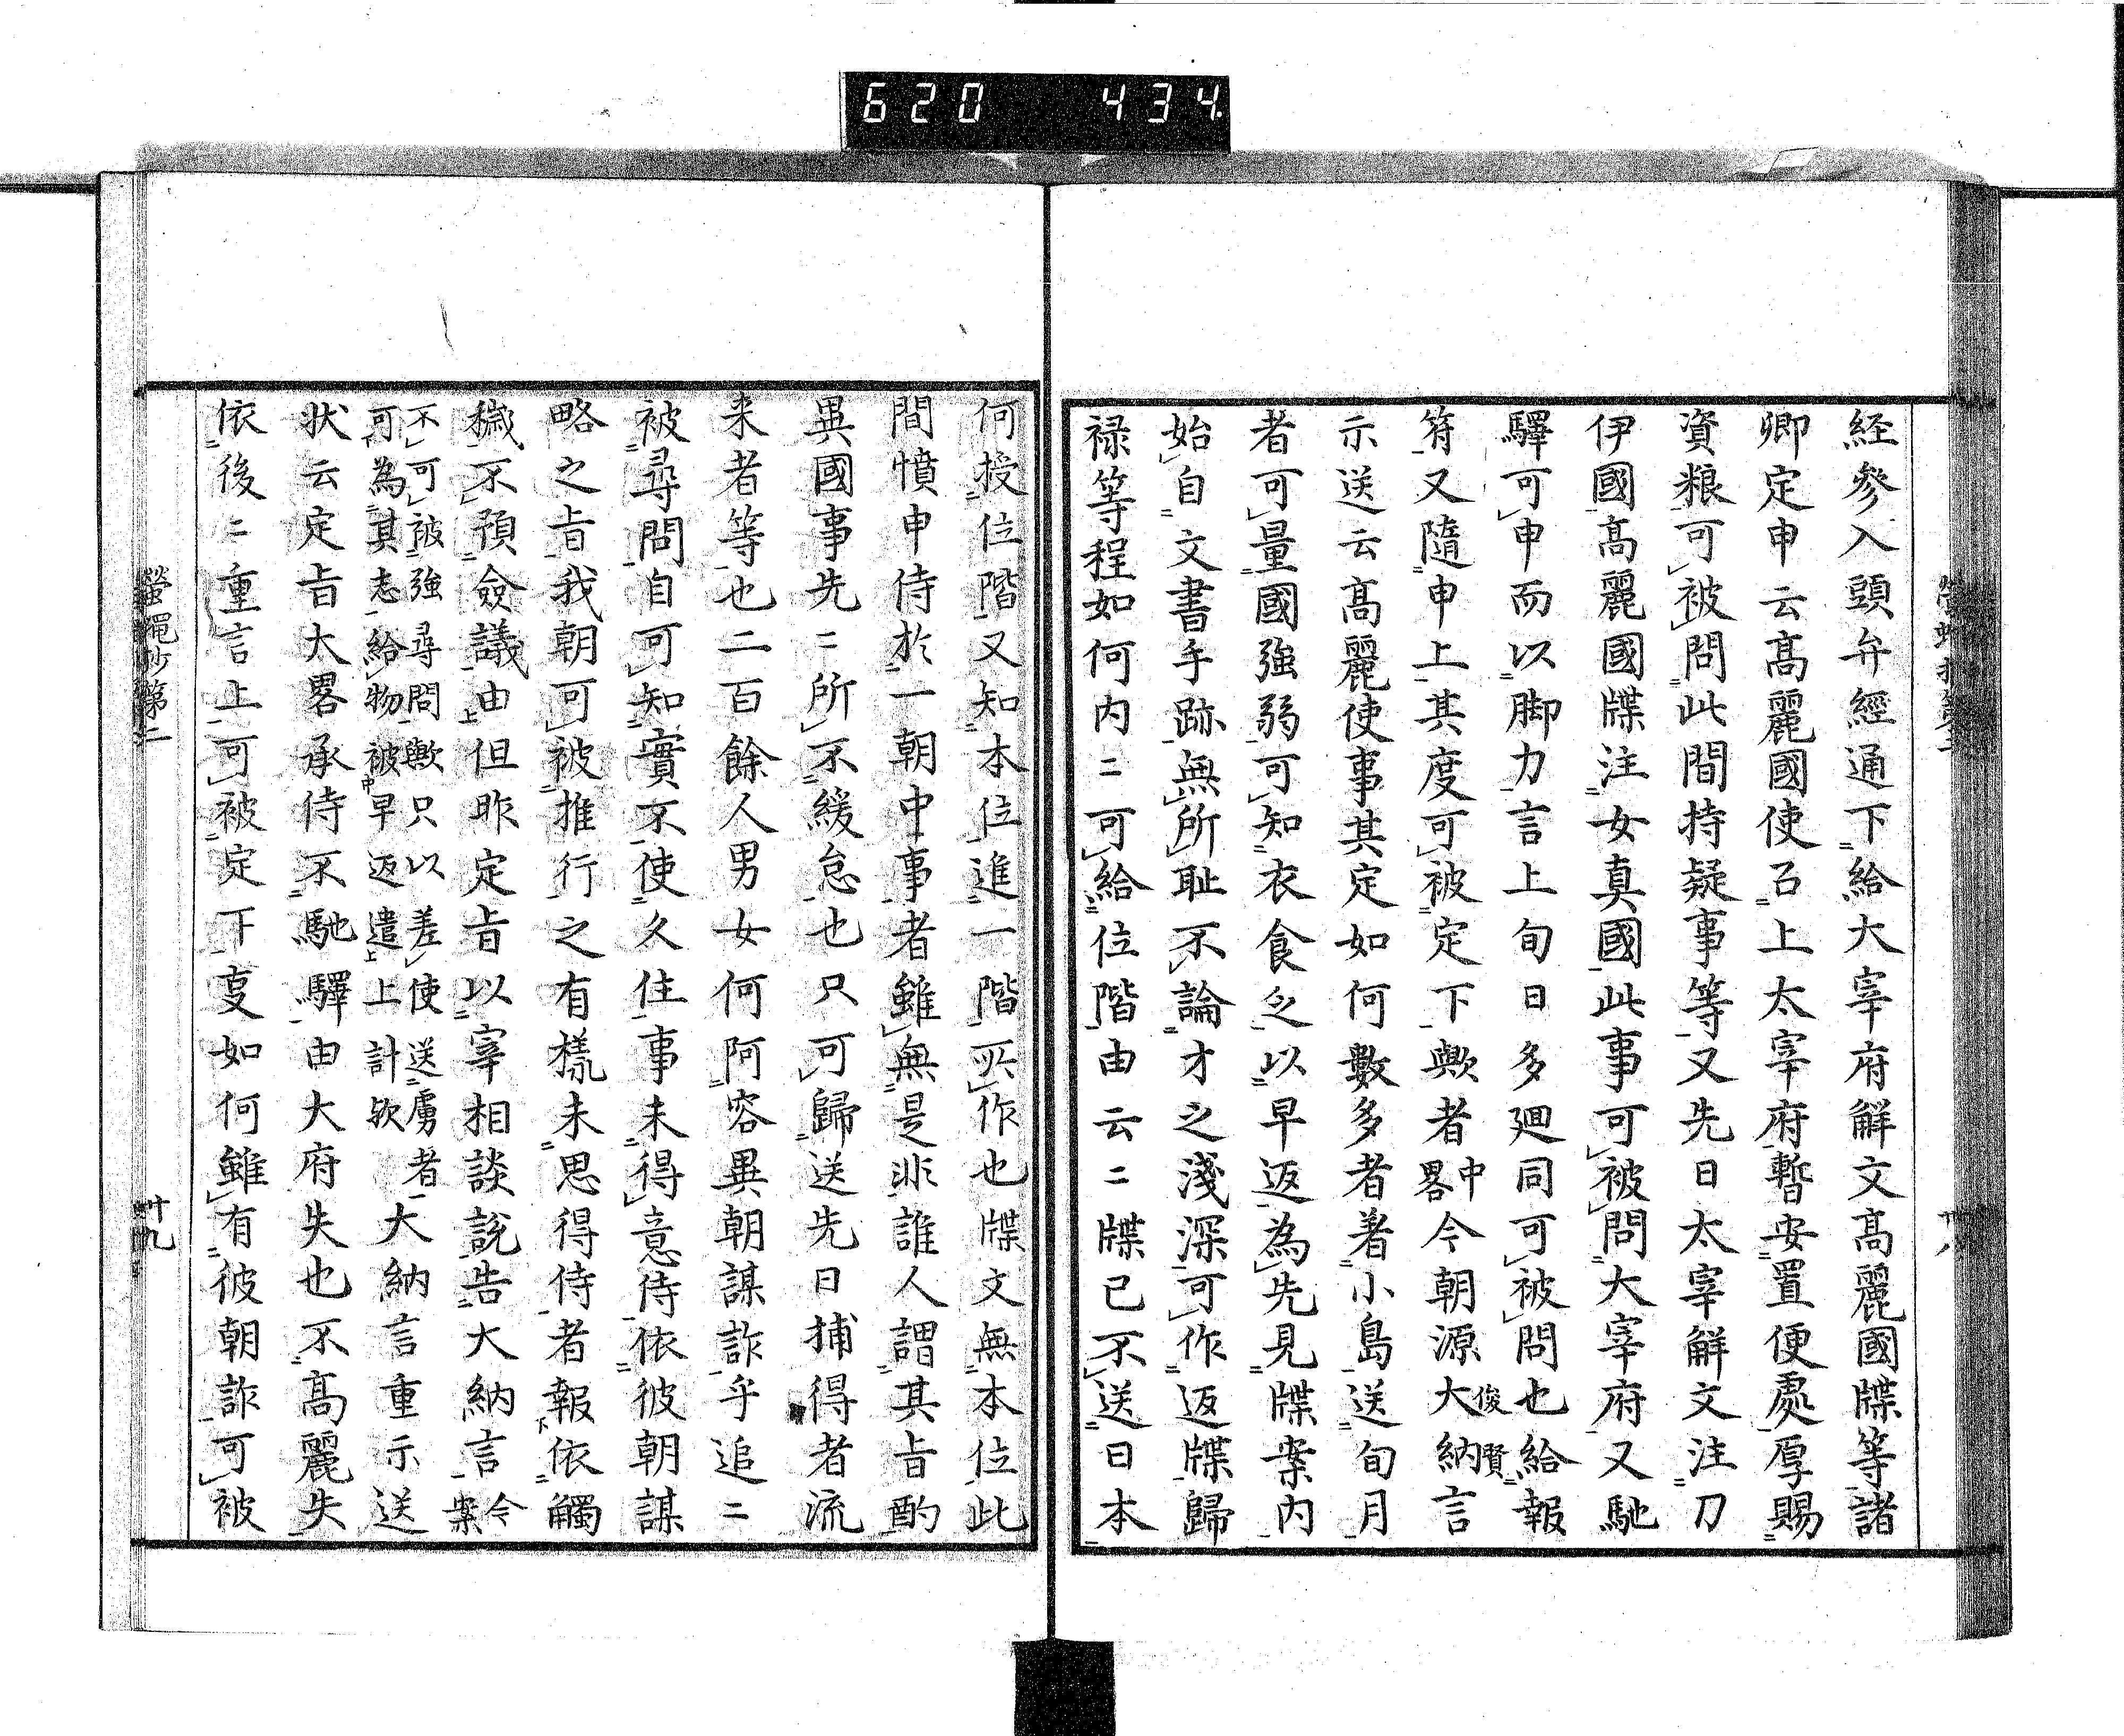 620 434.
経參入頭弁經通下給大宰府解文髙麗國牒等諸
卿定申云髙麗國使召上太宰府暫安置便處厚賜
資粮可被問此間持疑事等又先日太宰解文注刀
伊國髙麗國牒注女真國此事可被問大宰府又馳
驛可申而以脚力言上旬日多廻同可被問也給報
符又隨申上其度可被定下歟者中畧今朝源大納言俊賢
示送云髙麗使事其定如何數多者著小島送旬月
者可量國強弱可知衣食乏以早返為先見牒案内
始自文書手跡無所耻不論才之淺深可作返牒歸
禄等程如何内〻可給位階由云〻牒已不送日本
何授位階又知本位進一階所作也牒文無本位此
間憤申侍於一朝中事者雖無是非誰人謂其旨酌
異國事先〻所不緩怠也只可歸送先日捕得者流
来者等也二百餘人男女何阿容異朝謀詐乎追〻
被尋問自可知實不使久住事未得意侍依彼朝謀
略之旨我朝可被推行之有樣未思得侍者報依觸
穢不預僉議由但昨定旨以宰相談說告大納言令案
不可被強尋問歟只以差使送虜者
可為其志給物被早返遣上計欤
大納言重示送
状云定旨大畧承侍不馳驛由大府失也不髙麗失
依後〻重言上可被定下亊如何雖有彼朝詐可被
螢蠅抄第二
廿九
廿八